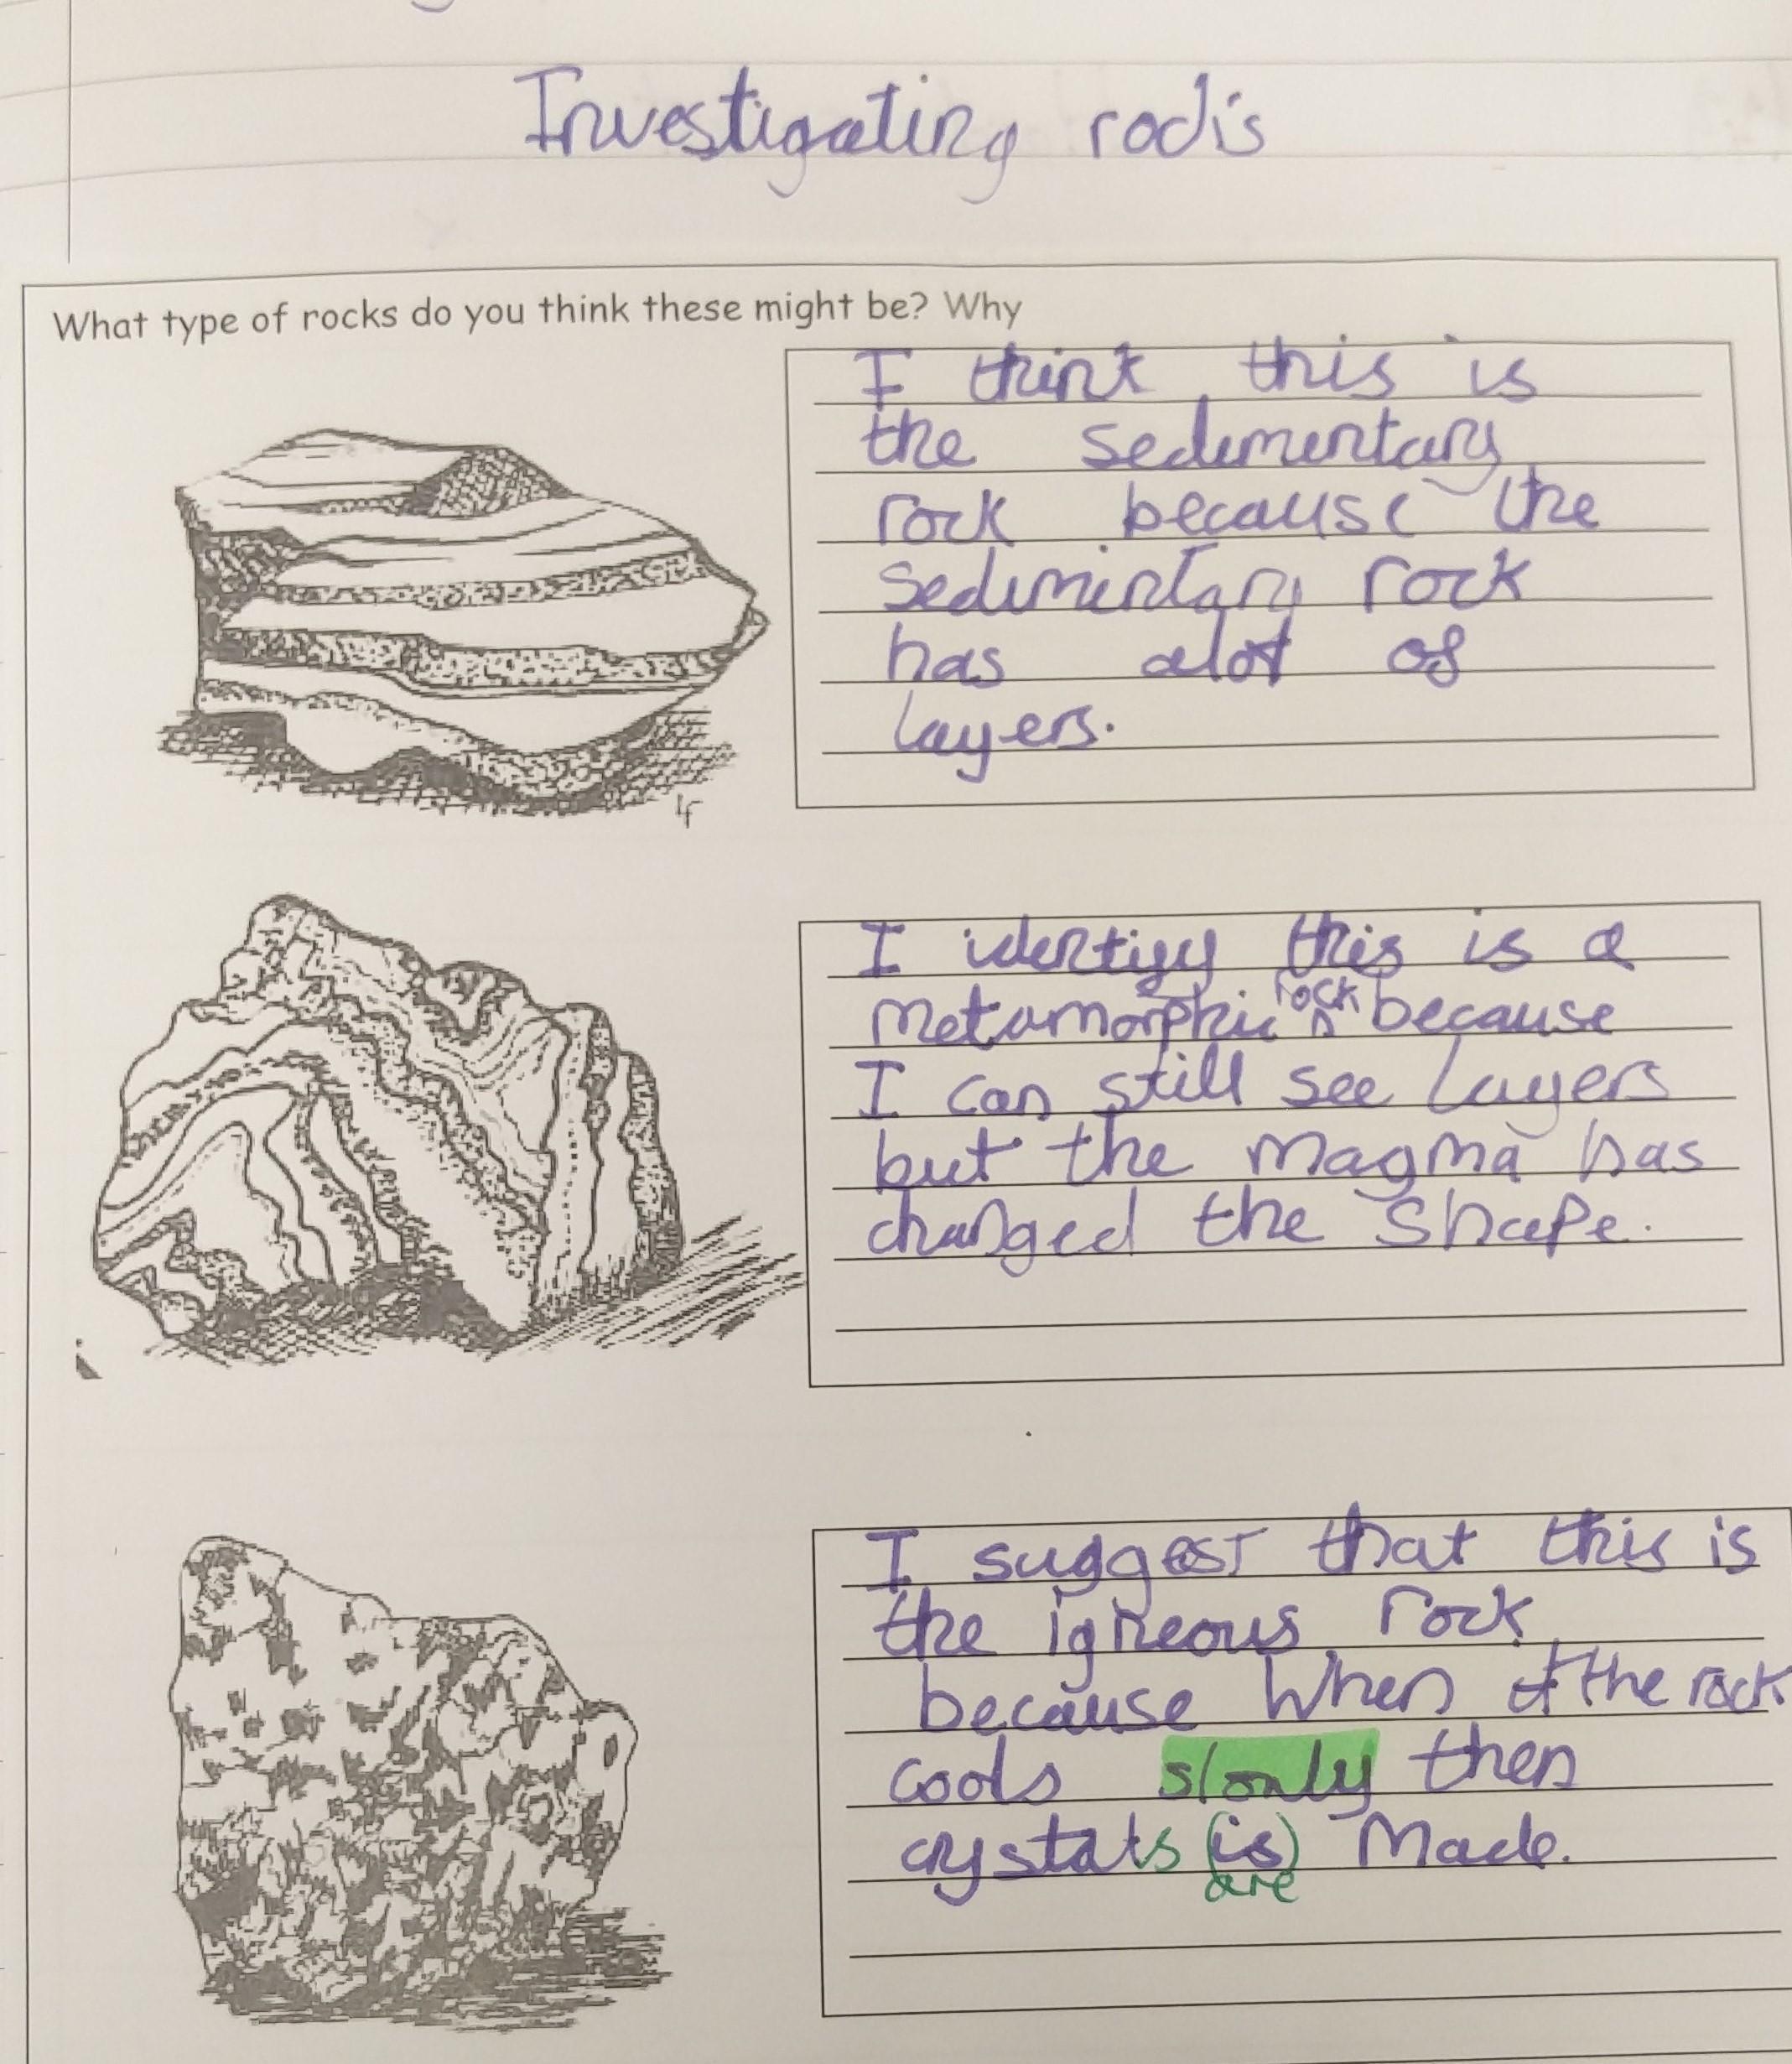 Investigating rocks
What type of rocks do you think these might be? Why
I think this is
the sedimentary
rock because the
sedimintary rock
has alot of
layers.
I identify this is a
metamorphic rock because
I can still see layers
but the magma has
changed the shape.
I suggest that this is
the igneous rock
because when the rock
cools slowly then
crystals (is) made.
are